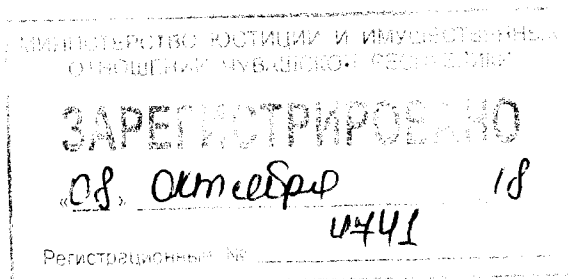 МИНИСТЕРСТВО ЮСТИЦИИ И ИМУЩЕСТВЕННЫХ
ОТНОШЕНИЙ ЧУВАШСКОЙ РЕСПУБЛИКИ
ЗАРЕГИСТРИРОВАНО
«08» октября 18
4741
Регистрационный №